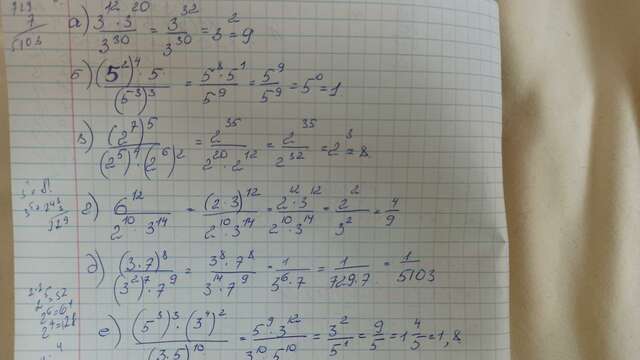 729
7
5103
а) (3^12 · 3^20)/3^30 = 3^32/3^30 = 3^2 = 9
б) ((5^2)^4 · 5)/(5^3)^3 = (5^8 · 5^1)/5^9 = 5^9/5^9 = 5^0 = 1
в) (2^7)^5/((2^5)^4 · (2^6)^2) = 2^35/(2^20 · 2^12) = 2^35/2^32 = 2^3 = 8
г) 6^12/(2^10 · 3^14) = (2·3)^12/(2^10 · 3^14) = (2^12 · 3^12)/(2^10 · 3^14) = 2^2/3^2 = 4/9
д) (3·7)^8/((3^2)^7 · 7^9) = (3^8 · 7^8)/(3^14 · 7^9) = 1/(3^6 · 7) = 1/(729·7) = 1/5103
е) ((5^3)^3 · (3^4)^2)/(3·5)^10 = (5^9 · 3^12)/(3^10 · 5^10) = 3^2/5^1 = 9/5 = 1 4/5 = 1,8